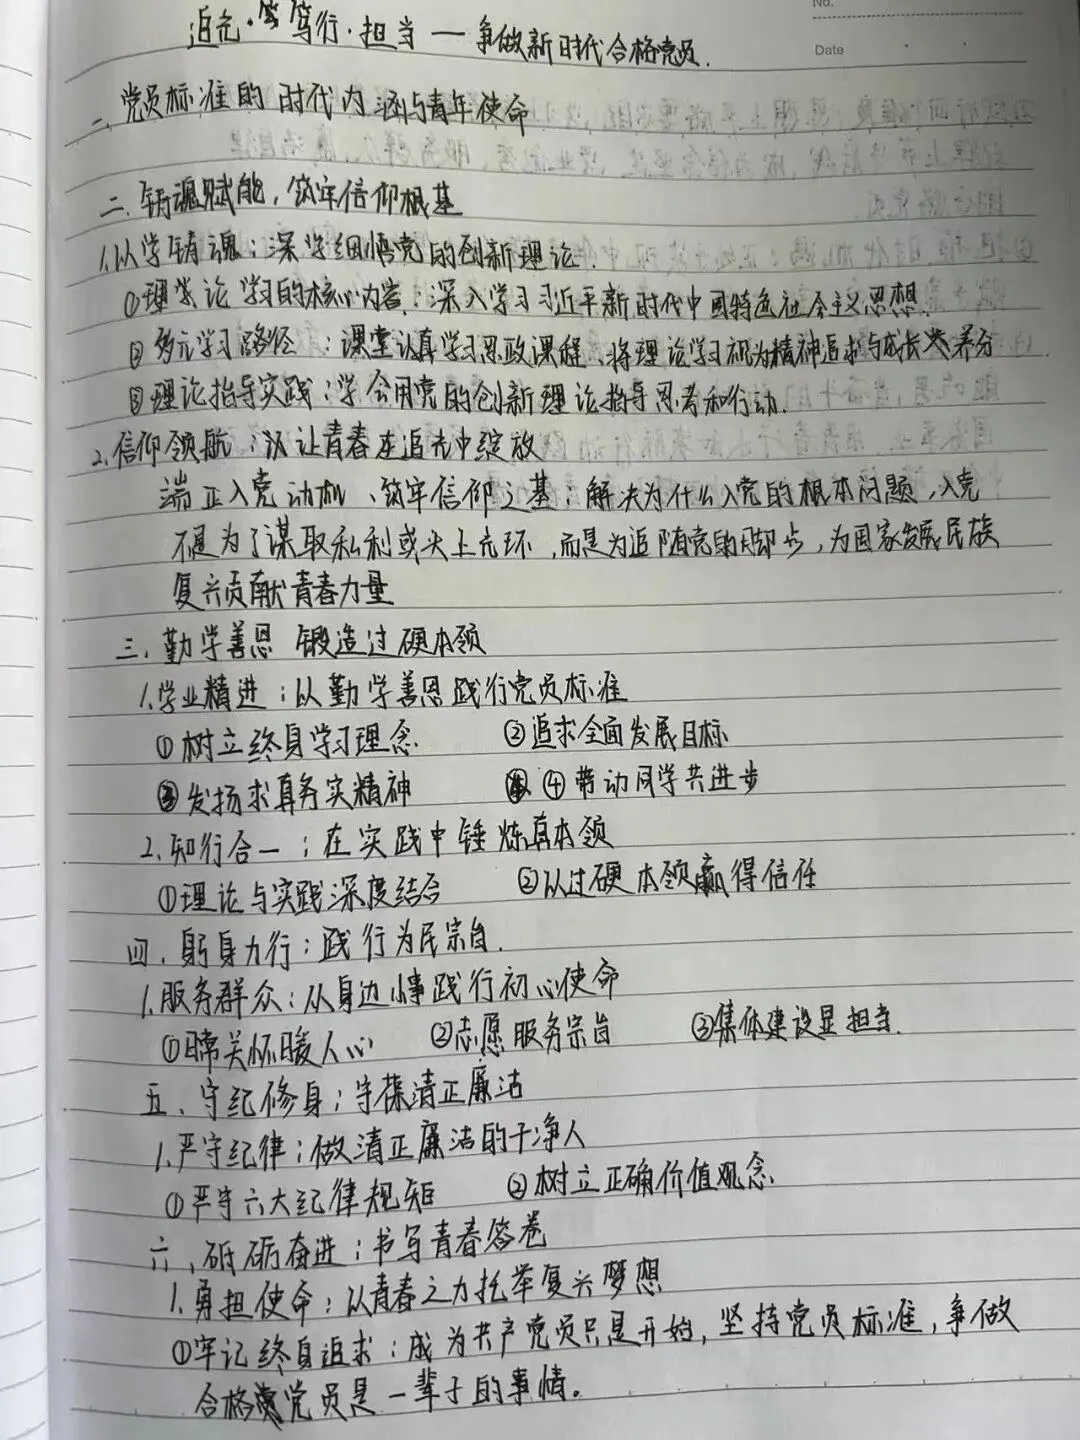 No.
Date
追光·笃行·担当 — 争做新时代合格党员.
一、党员标准的时代内涵与青年使命
二、铸魂赋能，筑牢信仰根基
1.从学铸魂：深学细悟党的创新理论.
①理学论学习的核心内容：深入学习习近平新时代中国特色社会主义思想.
②多元学习路径：课堂认真学习思政课程、将理论学习视为精神追求与成长养分
③理论指导实践：学会用党的创新理论指导思考和行动.
2.信仰领航：让青春在追光中绽放
端正入党动机、筑牢信仰之基：解决为什么入党的根本问题，入党
不是为了谋取私利或头上光环，而是为追随党的脚步，为国家发展民族
复兴贡献青春力量
三、勤学善思 锻造过硬本领
1.学业精进：以勤学善思践行党员标准
①树立终身学习理念 ②追求全面发展目标
③发扬求真务实精神 ④带动同学共进步
2.知行合一：在实践中锤炼真本领
①理论与实践深度结合 ②以过硬本领赢得信任
四、躬身力行：践行为民宗旨.
1.服务群众：从身边小事践行初心使命
①日常关怀暖人心 ②志愿服务宗旨 ③集体建设显担当.
五、守纪修身：守葆清正廉洁
1.严守纪律：做清正廉洁的干净人
①严守六大纪律规矩 ②树立正确价值观念
六、砥砺奋进：书写青春答卷
1.勇担使命：以青春之力托举复兴梦想
①牢记终身追求：成为共产党员只是开始，坚持党员标准，争做
合格党员是一辈子的事情。